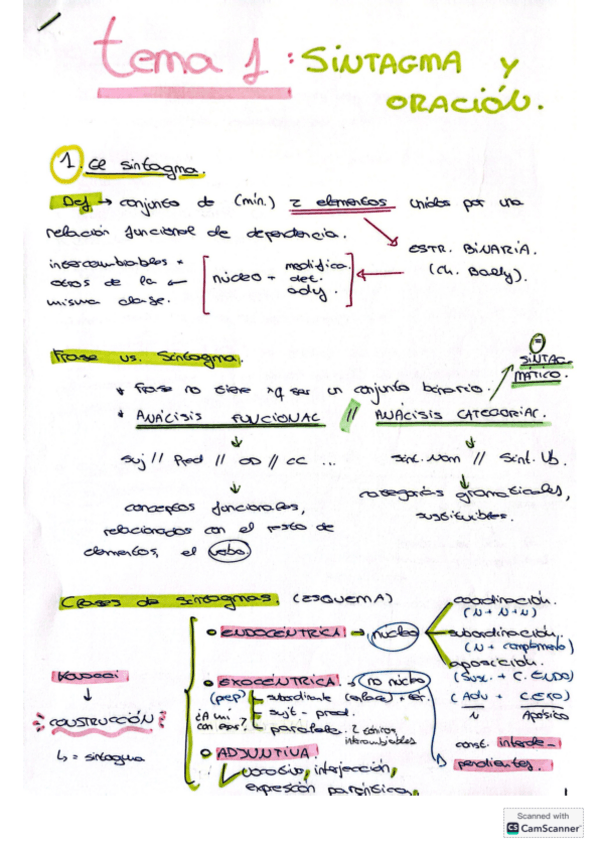 tema 1: SINTAGMA Y
ORACIÓN.
1. el sintagma.
Def → conjunto de (mín.) 2 elementos unidos por una
relación funcional de dependencia.
ESTR. BINARIA.
(Ch. Bally).
intercambiables x
otros de la ←
misma clase.
núcleo +
modifica.
det.
ady.
Frase vs. Sintagma.
= SINTAG-
MÁTICO.
* frase no tiene xq ser un conjunto binario.
* ANÁLISIS FUNCIONAL // ANÁLISIS CATEGORIAL.
Suj // Pred // OD // CC ...
Sint. Nom // Sint. Vb.
conceptos funcionales,
relacionados con el resto de
elementos, el verbo.
categorías gramaticales,
sustituibles.
Clases de sintagmas. (ESQUEMA)
CONSTRUCCIÓN
↳ = sintagma
• ENDOCÉNTRICA → núcleo
coordinación.
(N + N + N)
subordinación.
(N + complemento)
aposición.
(Sust. + C.
(Adv + CERO)
N Apósito
• EXOCÉNTRICA → no núcleo
(pep) subordinante (enlace) + tér.
¿A mí
con esas?
sujt - pred.
paralela. 2
intercambiables
const. interde-
pendientes.
• ADJUNTIVA.
vocativo, interjección,
expresión parentética.
Scanned with
CS CamScanner